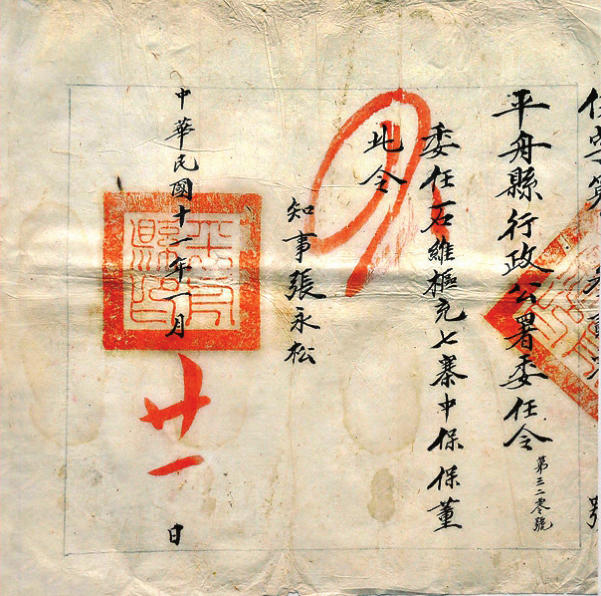 任字第
號
平舟縣行政公署委任令
第三二零號
委任石維樞充七寨中保保董
此令
知事張永松
中華民國十一年一月廿一日
平舟縣印